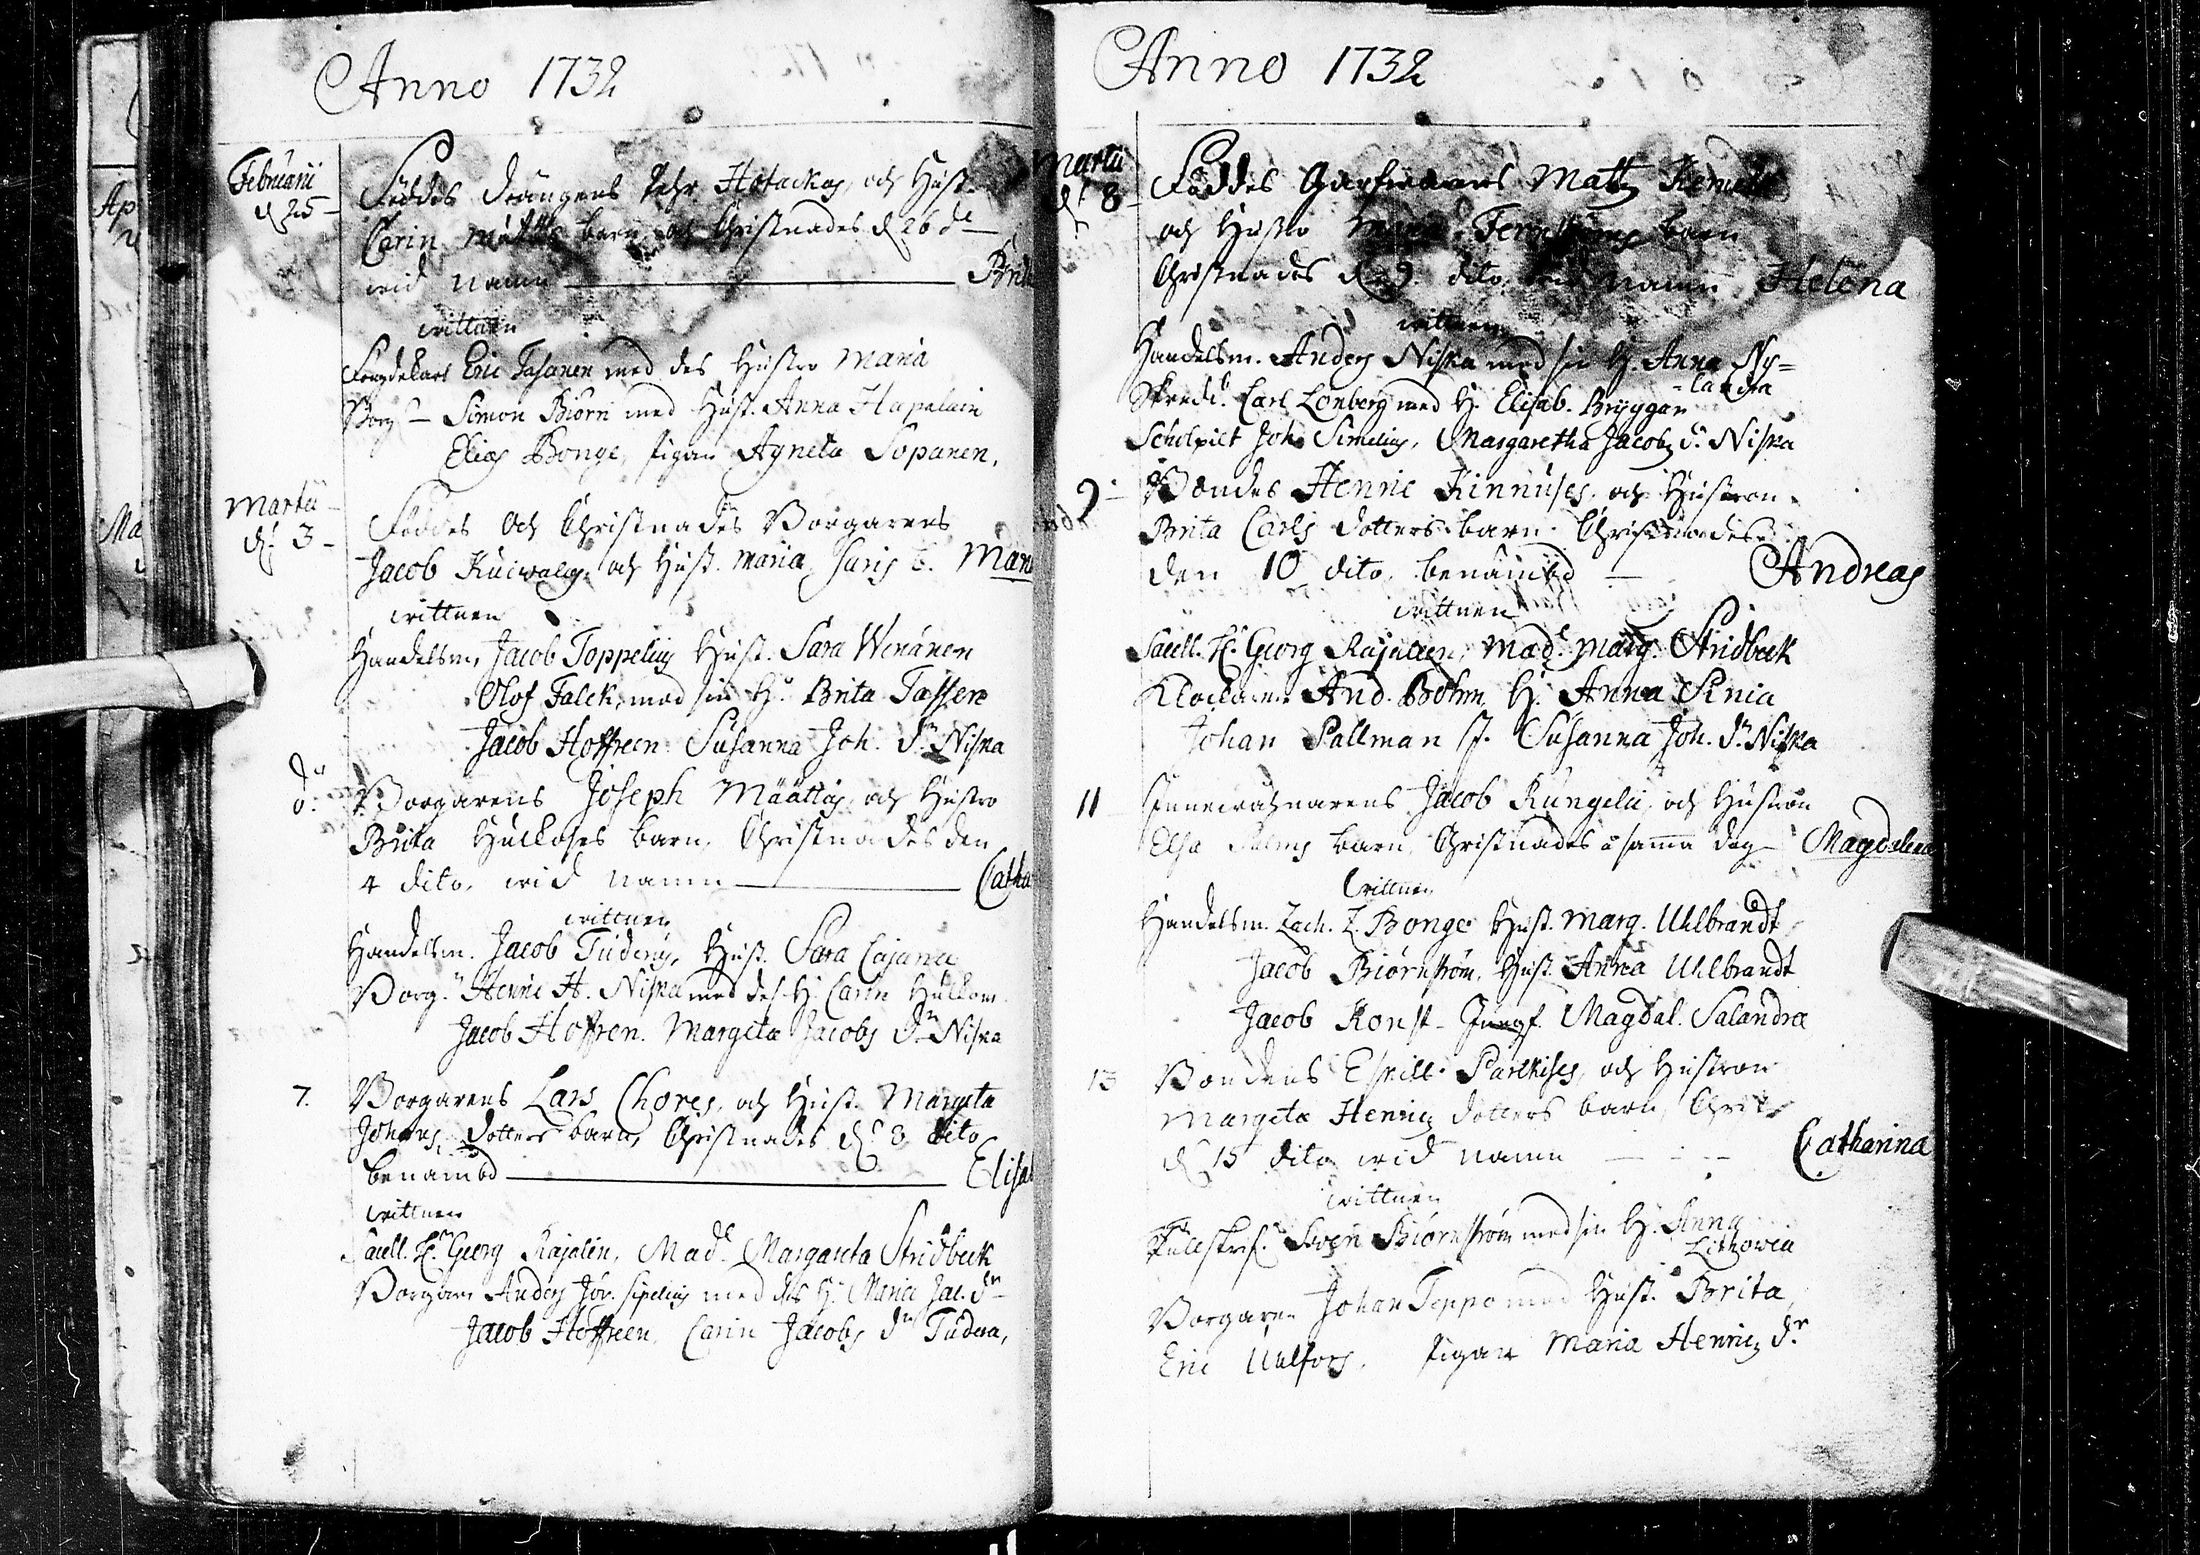 Anno 1732
Februarii
d 25
Föddes drängens Pehr Hotackas, och Hust.
Carin Matts barn och Christnades d 26 do
wid namn Brita
wittnen
Eric Tasanen med des Hustro Maria
Borg. Simon Biörn med Hust. Anna Hapalain
Elias Bonge, pigan Agneta Sopanen.
Martii
d. 3
Föddes och Christnades Borgarens
Jacob Kuiwalas och Hust. Maria Juris b. Mari
wittnen
Handelsm. Jacob Toppelius Hust. Sara Wenänen
Olof Falck, med sin H. Brita Tossen
Jacob Hoffreen Susanna Joh. dr Niska
do
Borgarens Joseph Määttäs och Hustro
Brita Hulkoses barn, Christnades den
4 dito, wid namn Catha
wittnen
Handelsm. Jacob Tuderus, Hust. Sara Cajana
Borg. Henric H. Niska med des H. Carin Hulkoin
Jacob Hoffren. Margeta Jacobs dr Niska
7.
Borgarens Lars Chores, och Hust. Margeta
Johans dotters barn, Christnades d. 8 dito
benämbd Elisa
wittnen
Sacell. Hr Georg Rajalen, Mad. Margareta Stridbeck
Borgaren Anders Jör. Sipelius med des H. Maria Jac. dr
Jacob Hoffreen, Carin Jacobs dr Tudera,
Anno 1732
Martii
d. 8
Föddes Matts
och Hustro barn
Christnades d. 9. dito, wid namn Helena
wittnen
Handelsm. Anders Niska med sin H. Anna Ny=
=landra
Skredd. Carl Lonberg med H. Elisab. Bryggar
Scholpilt Joh. Simelius, Margaretha Jacobs dr Niska
9
Bondes Henric Kinnuses, och Hustron
Brita Carls dotters barn Christnades
den 10 dito, benämbd Andreas
wittnen
Sacell. Hr Georg Rajaleen, Mad. Marg. Stridbeck
Klockaren And. Böhm, H. Anna Sinia
Johan Pallman J. Susanna Joh. dr Niska
11
Jacob Rungelii, och Hustron
Elsa barn, Christnades samma dag Magdalena
wittnen
Handelsm. Zach. Z. Bonge Hust. Marg. Uhlbrandt
Jacob Biörnström, Hust. Anna Uhlbrandt
Jacob Konst. Jungf. Magdal. Salandra
13
Bondens Eskill Parkises, och Hustron
Margeta Henrics dotters barn, Christ.
d 15 dito wid namn Catharina
wittnen
Tullskrif. Sven Biörnström med sin H. Anna
Lithovia
Borgaren Johan Teppo med Hust. Brita,
Eric Uulfors. pigan Maria Henrics dr